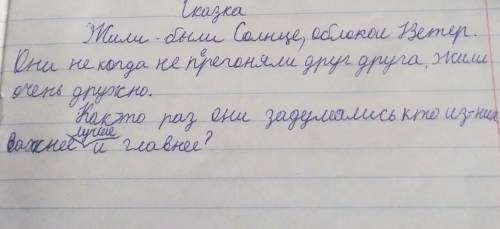 Сказка
Жили-были Солнце, облокои Ветер.
Они не когда не прегоняли друг друга, жили
очень дружно.
Как то раз они задумались кто из-них
важнее лучше и главнее?